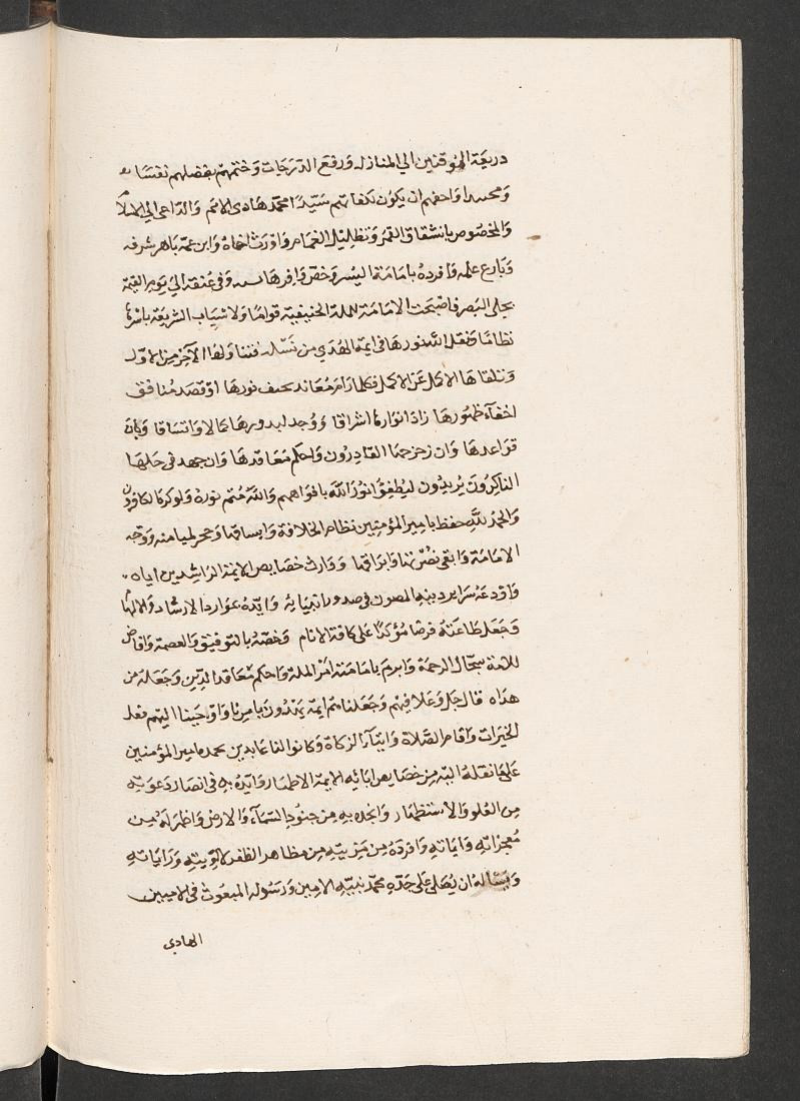 دريعَة الموقنين الي المنازل وَرفعَ الدّرَجَات وَختمهمْ بفضلهم نفسًا
وَمحتدا وَاحقهم ان يكون لكفاتهم سَيّدنا محمّد هَادى الامم وَالدّاعى الي الاسلام
وَالمخصُوص بانشقاق القمَر وَتظليل الغمَام وَاوْرَث اخَاهُ وَابن عمّه بَاهر شرفه
وَبَارع علمه وَافردهُ بامَامَة البشر وَخصّ وَافرهَا به وَفى عُنقه الي يَوم القيمَة
بجلى النصر فاصْبحَت الامَامَة للملة الحنيفيّة قوامًا وَلاسْبَاب الشريعَة باسْرهَا
نظامًا وَنقل الله نورهَا فى ايمة الهدَي من نَسْله فتناوَلهَا الآخِرُ مِنَ الاوّل
وَتلقاهَا الاكمل عَن الاكمل فكلما رَامَ مُعَاند بحيف نورهَا اوْ قصَد مُنافق
اخفآء ظهُورهَا زادَ انوَارهَا اشراقا وَوُجد لبدورهَا كمَالا وَاتسَاقا وَبانَ
قوَاعدهَا وَان زحزحهَا القادِرُون وَاحكم مَعَاقدهَا وَان جهد فى حَلهَا
الناكِرُونَ يُريدُون ليُطفِؤا نورَ اللّه بافوَاههم وَاللّه مُتم نوره وَلو كره الكافرون
وَالحمدُ للّه حفظ بامِير المؤمنِين نظام الخلافة وَاتساقها وَحَجر لميامنه وَوَجّه
الامَامَة وَابقى نضرتهَا وَابرَاقها وَوَارث خصَايص الايمة الرّاشدين اباه
وَاوْدعَهُ سَرَاير دينهِ المصون فى صدور انبيَائه وَايّدهُ بمَوارد الارشاد وَالالهَام
وَجعَل طاعَتهُ فرضا مُؤكدًا على كافة الانام وَخصّهُ بالتوفيق وَالعصمة وَافاض
للامّة سجَال الرحمَة وَابرم بامَامَته امْر الملة وَاحكم مَعَاقد الدِّين وَجَعَله من
هداه قال جَل وَعَلا فيهمْ وَجَعَلناهُم ايمّة يَهْدُونَ بامرنا وَاوْحَينا اليهم فعل
الخيرَات وَاقام الصّلاة وَايتآءَ الزكاة وَكانوا لنا عَابدين بحمده امير المؤمنين
عَلى مَا نقلهُ اليْه مِن خصَايص ابَائهِ الايمّة الاطهَار وَايّدهُ بهِ فى انصَار دَعوَتِهِ
مِن العُلو وَالاسْتظهَار وَانجدهُ بهِ مِن جنود السّمآء وَالارض وَاظهرَ لهُ مِن
مُعجزاته وَايَاته وَافردهُ مِن مَزيته مِن مظاهر الظفر لالويته وَرَايَاته
وَيَسْأله ان يُصَلى عَلى جَدّه محمّد نبيّه الامين وَرَسُوله المبعَوث فى الاميين
الهادي